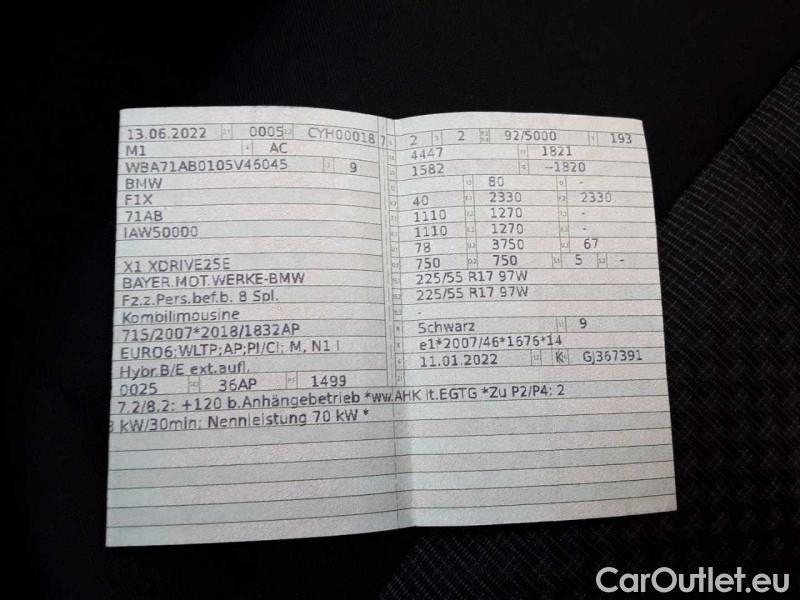 13.06.2022 0005 CYH00018 7
M1 AC
WBA71AB0105V46045 9
BMW
F1X
71AB
IAW50000
X1 XDRIVE25E
BAYER.MOT.WERKE-BMW
Fz.z.Pers.bef.b. 8 Spl.
Kombilimousine
715/2007*2018/1832AP
EURO6;WLTP;AP;PI/CI; M, N1 I
Hybr.B/E ext.aufl.
0025 36AP 1499
2 2 92/5000 193
4447 1821
1582 --1820
80 -
40 2330 2330
1110 1270 -
1110 1270 -
78 3750 67
750 750 5 -
225/55 R17 97W
225/55 R17 97W
-
Schwarz 9
e1*2007/46*1676*14
11.01.2022 K GJ367391
7.2/8.2: +120 b.Anhängebetrieb *ww.AHK lt.EGTG *Zu P2/P4: 2
8 kW/30min; Nennleistung 70 kW *
CarOutlet.eu